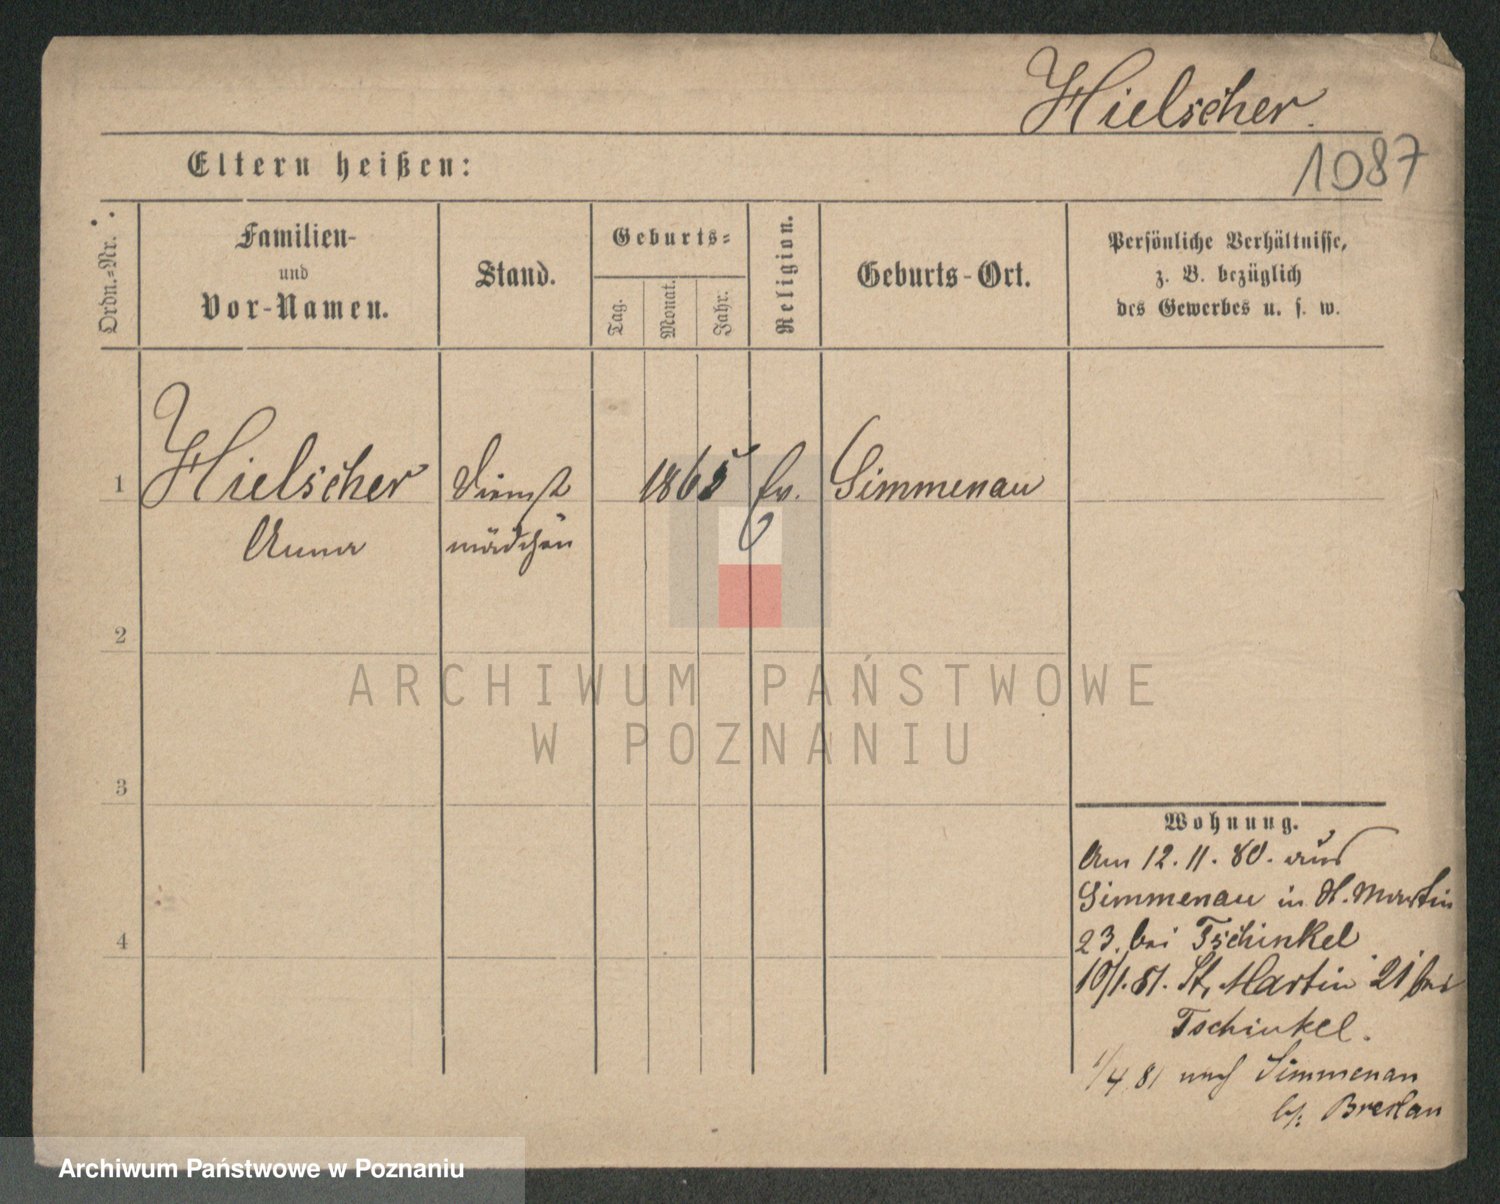 Hielscher.
1087
Eltern heißen:
Ordn.-Nr.
Familien-
und
Vor-Namen.
Stand.
Geburts-
Tag.
Monat.
Jahr.
Religion.
Geburts-Ort.
Persönliche Verhältnisse,
z. B. bezüglich
des Gewerbes u. s. w.
1
Hielscher
Anna
Dienst
mädchen
1865
Ev.
Simmenau
2
3
4
Wohnung.
Am 12. 11. 80. aus
Simmenau in St. Martin
23. bei Tschinkel
10/1. 81. St. Martin 21 bei
Tschinkel.
1/4 81 nach Simmenau
b/. Breslau
ARCHIWUM PAŃSTWOWE
W POZNANIU
Archiwum Państwowe w Poznaniu